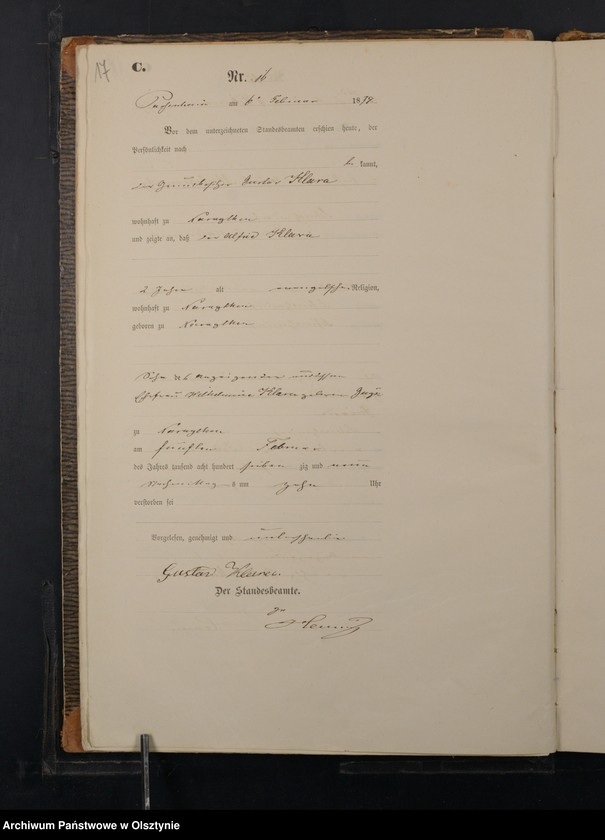 17
C.
Nr. 16
am 6ten Februar 1879
Vor dem unterzeichneten Standesbeamten erschien heute, der
Persönlichkeit nach
kannt,
der Gustav Klara
wohnhaft zu
und zeigte an, daß der Alfred Klara
2 Jahre alt evangelischer Religion,
wohnhaft zu
geboren zu
Sohn des Anzeigenden und dessen
Ehefrau Wilhelmine Klara geborene
zu
am fünften Februar
des Jahres tausend acht hundert sieben zig und neun
Nachmittags um zehn Uhr
verstorben sei
Vorgelesen, genehmigt und unterschrieben
Gustav Klara.
Der Standesbeamte.
Archiwum Państwowe w Olsztynie